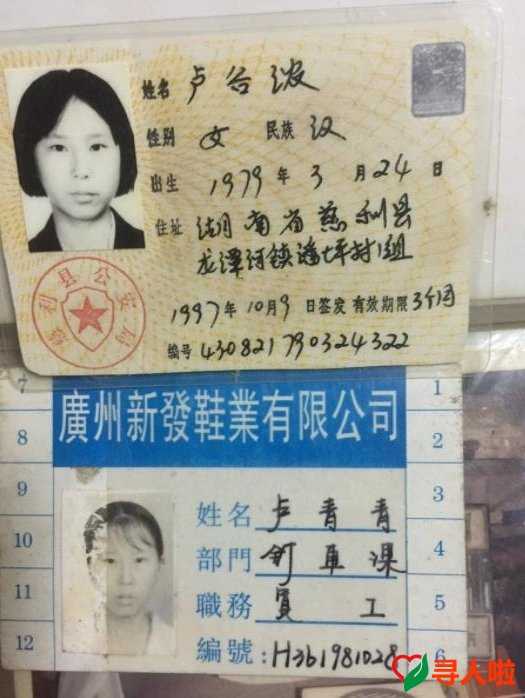 姓名 卢谷波
性别 女 民族 汉
出生 1979年3月24日
住址 湖南省慈利县
龙潭河镇潘坪村1组
慈利县公安局
1997年10月9日签发 有效期限3个月
编号 430821790324322
廣州新發鞋業有限公司
姓名 卢青青
部門 針車課
職務 員工
編號:H361981028
7
8
9
10
11
12
1
2
3
4
5
6
寻人啦